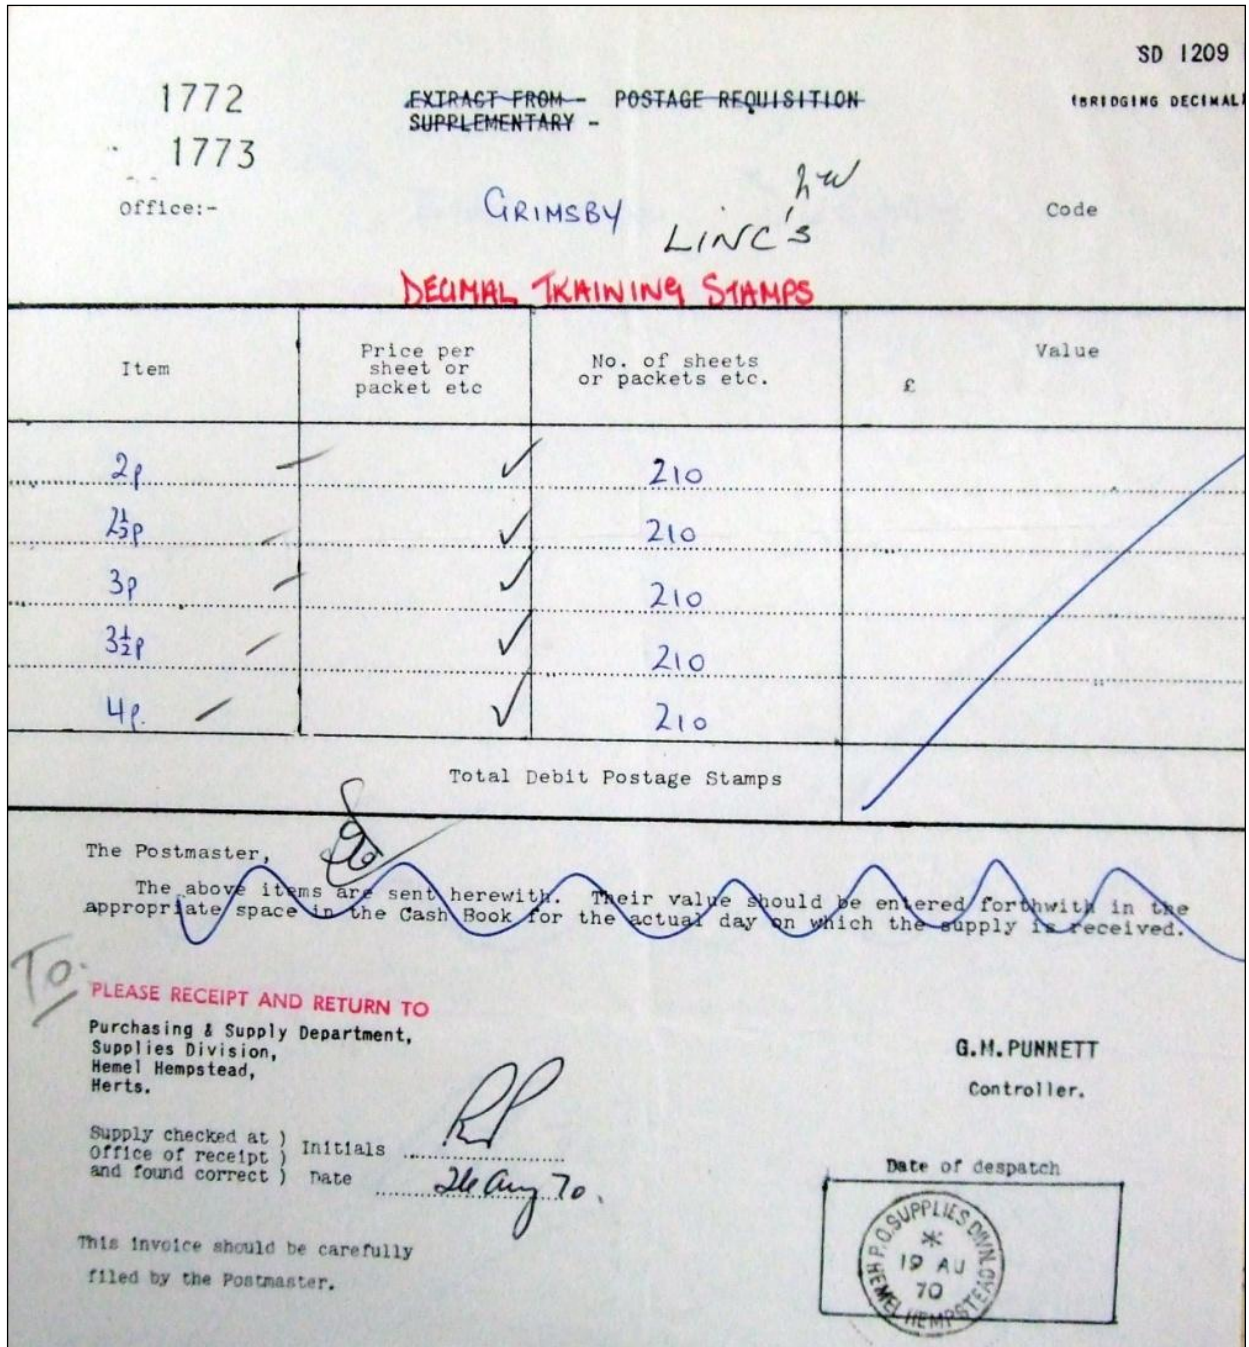 SD 1209
1772
EXTRACT FROM - POSTAGE REQUISITION
(BRIDGING DECIMAL)
SUPPLEMENTARY -
1773
Office:-
GRIMSBY
LINC'S
Code
DECIMAL TRAINING STAMPS
Item
Price per
sheet or
packet etc
No. of sheets
or packets etc.
Value
£
2p 210
2½p 210
3p 210
3½p 210
4p. 210
Total Debit Postage Stamps
The Postmaster,
The above items are sent herewith. Their value should be entered forthwith in the
appropriate space in the Cash Book for the actual day on which the supply is received.
To.
PLEASE RECEIPT AND RETURN TO
Purchasing & Supply Department,
Supplies Division,
Hemel Hempstead,
Herts.
G.M. PUNNETT
Controller.
Supply checked at )
Office of receipt ) Initials
and found correct ) Date 26 Aug 70.
Date of despatch
P.O. SUPPLIES DIVN. HEMEL HEMPSTEAD
19 AU
70
This invoice should be carefully
filed by the Postmaster.